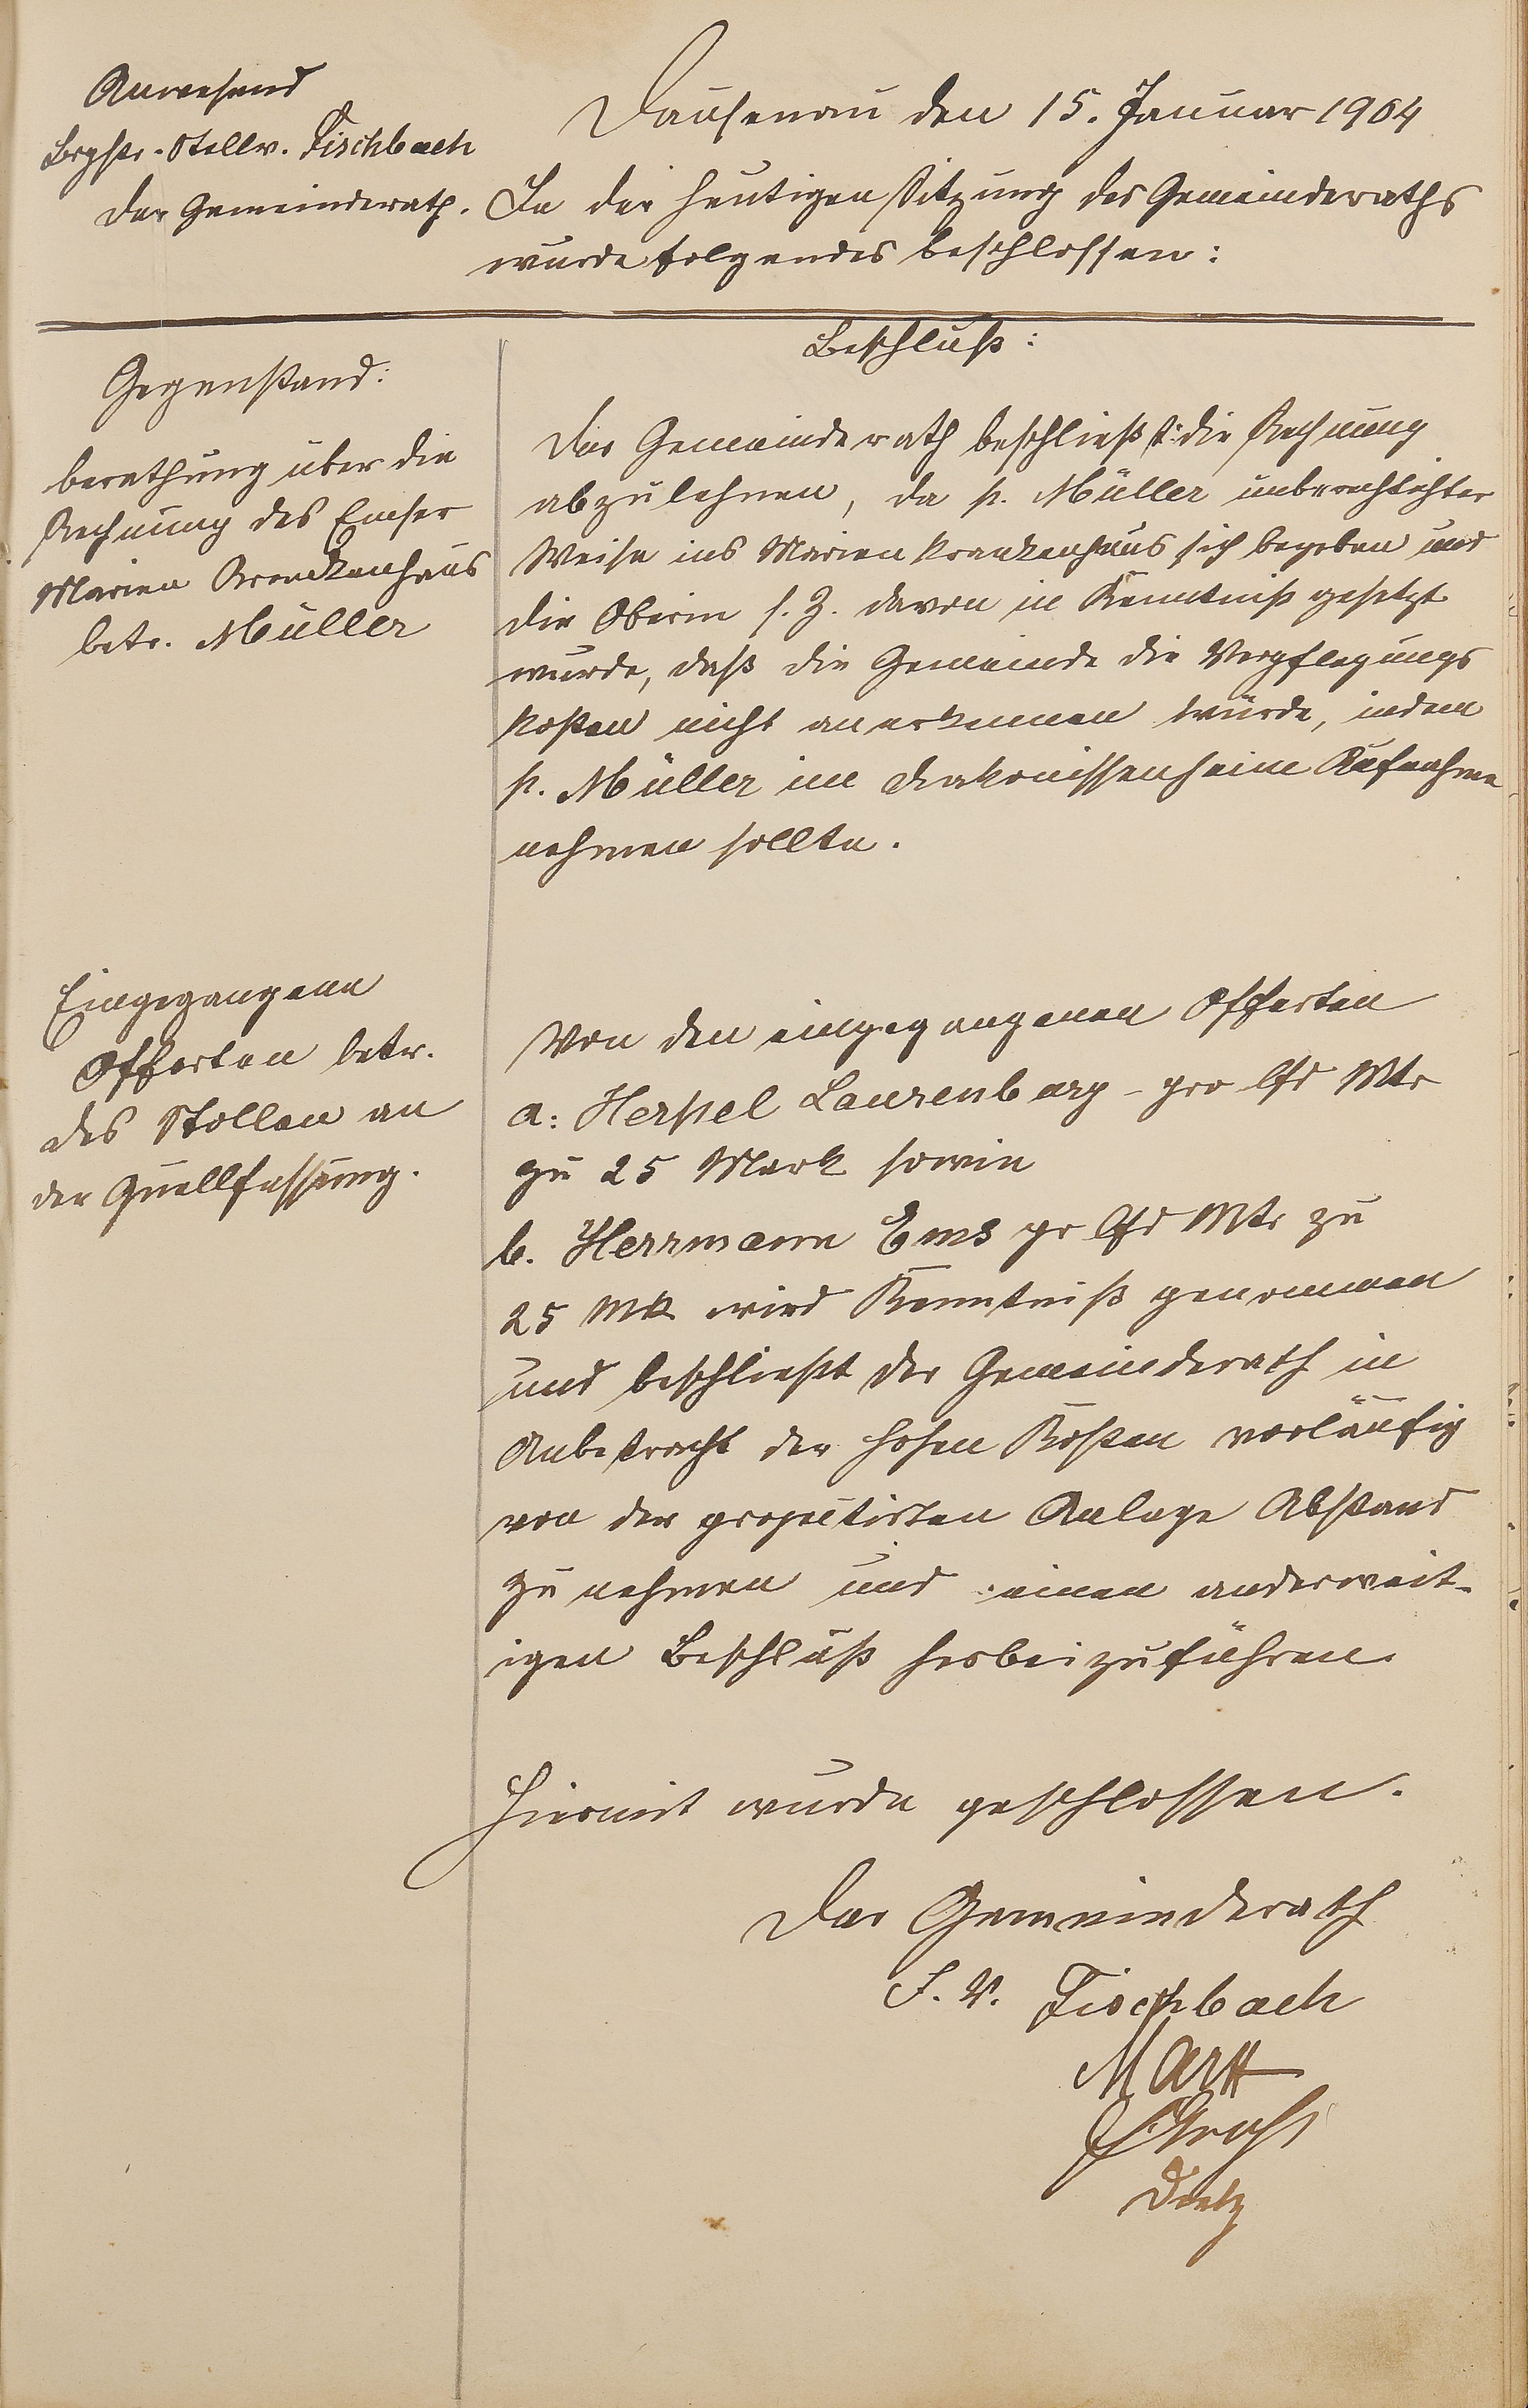 Anwesend
Brgstr.-Stellv. Fischbach
Der Gemeinderath.
Dausenau den 15. Januar 1904
In der heutigen Sitzung des Gemeinderaths
wurde folgendes beschlossen:
Gegenstand:
Berathung über die
Rechnung des Emser
Marien Krankenhaus
betr. Müller
Beschluß:
Der Gemeinderath beschließt die Rechnung
abzulehnen, da p. Müller unberechtigter
Weise ins Marienkrankenhaus sich begeben und
die Oberin s. Z. davon in Kenntniß gesetzt
wurde, daß die Gemeinde die Verpflegungs
kosten nicht anerkennen würde, indem
p. Müller im Diakonissenheim Aufnahme
nehmen sollte.
Eingegangene
Offerten betr.
des Stollen an
der Quellfassung.
Von den eingegangenen Offerten
a: Herpel Laurenburg - pro lfd Mtr
zu 25 Mark sowie
b. Herrmann Ems pr lfd Mtr zu
25 Mk wird Kenntniß genommen
und beschließt der Gemeinderath in
Anbetracht der hohen Kosten vorläufig
von der projectirten Anlage Abstand
zu nehmen und einen anderweit-
igen Beschluß herbeizuführen.
Hiermit wurde geschlossen.
Der Gemeinderath
J. V. Fischbach
Dietz